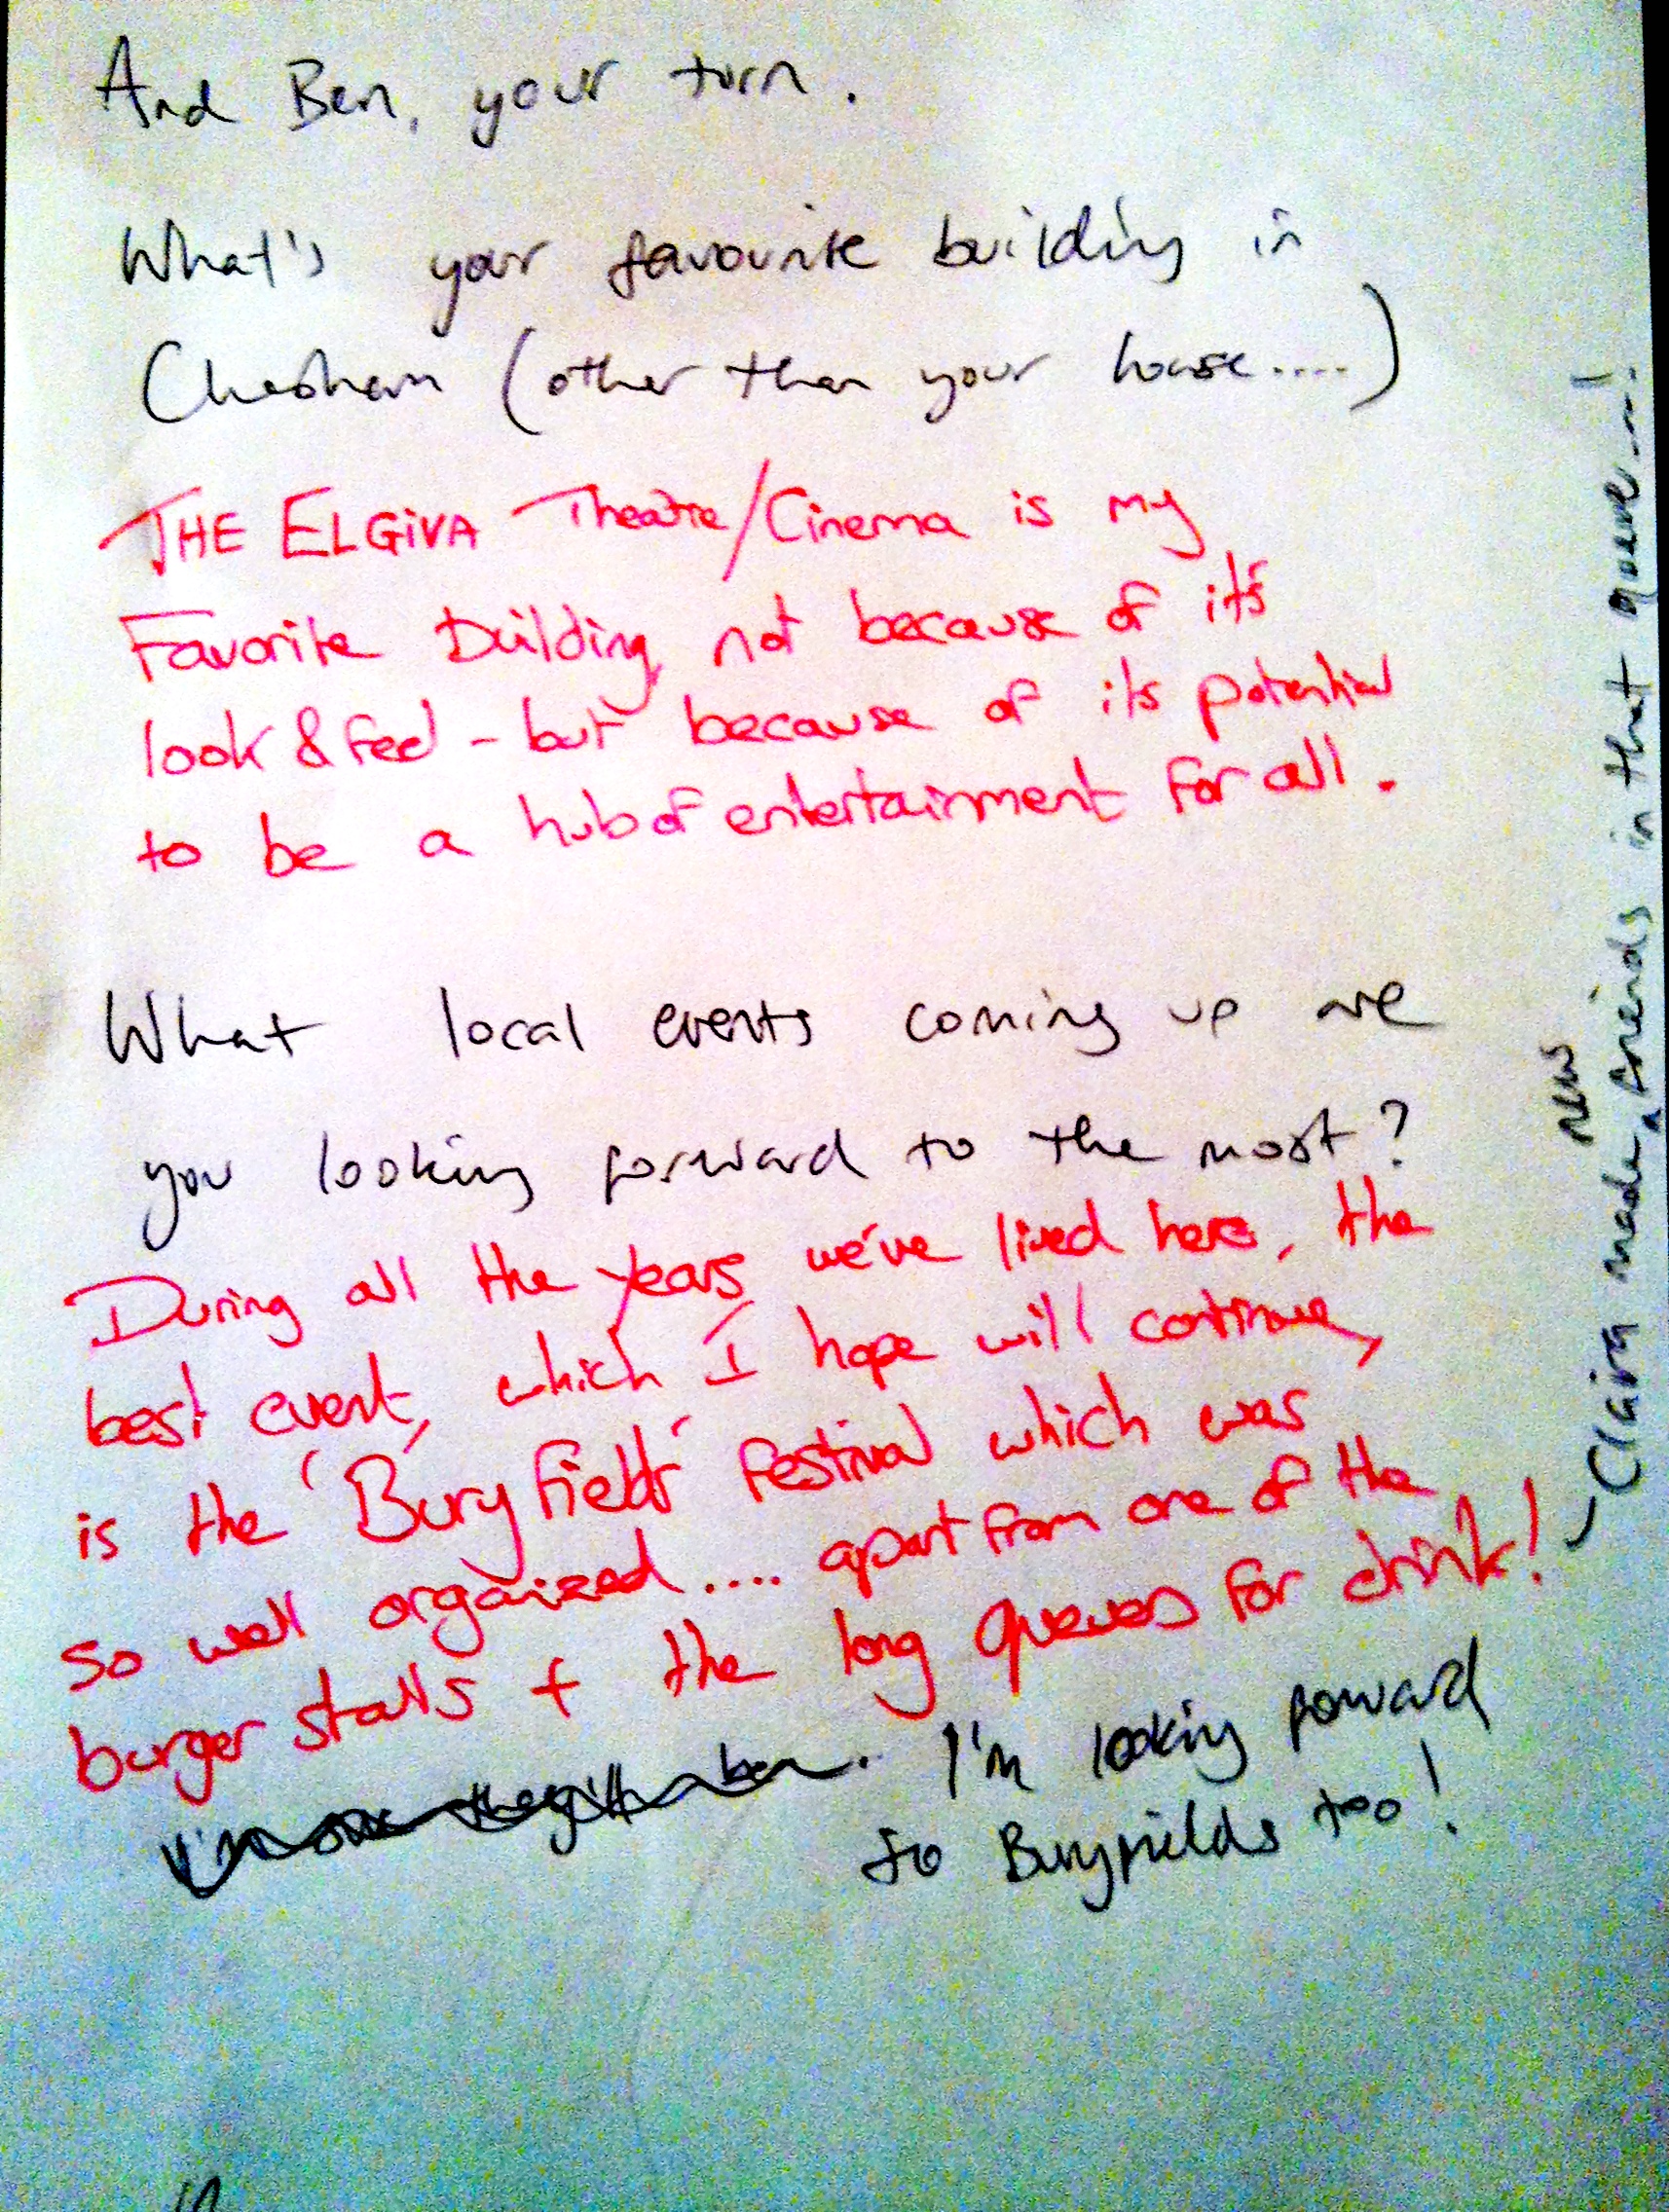 And Ben, your turn.
What's your favourite building in
Chesham (other than your house....)
THE ELGIVA Theatre/Cinema is my
Favorite building, not because of it's
look & feel - but because of its potential
to be a hub of entertainment for all.
What local events coming up are
you looking forward to the most?
During all the years we've lived here, the
best event, which I hope will continue,
is the 'Bury Fields' festival which was
so well organized.... apart from one of the
burger stalls + the long queues for drink!
I'm looking forward
to Buryfields too!
Claira made new friends in that queue...!